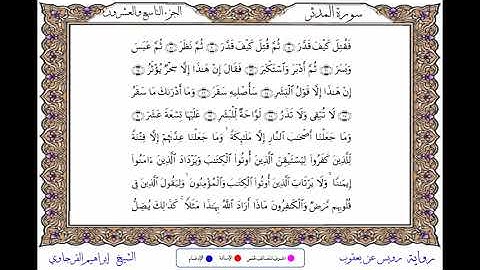 سورة المدثر
الجزء التاسع والعشرون
فَقُتِلَ كَيْفَ قَدَّرَ ثُمَّ قُتِلَ كَيْفَ قَدَّرَ ثُمَّ نَظَرَ ثُمَّ عَبَسَ
وَبَسَرَ ثُمَّ أَدْبَرَ وَٱسْتَكْبَرَ فَقَالَ إِنْ هَٰذَا إِلَّا سِحْرٌ يُؤْثَرُ
إِنْ هَٰذَا إِلَّا قَوْلُ ٱلْبَشَرِ سَأُصْلِيهِ سَقَرَ وَمَا أَدْرَىٰكَ مَا سَقَرُ
لَا تُبْقِي وَلَا تَذَرُ لَوَّاحَةٌ لِّلْبَشَرِ عَلَيْهَا تِسْعَةَ عَشَرَ
وَمَا جَعَلْنَا أَصْحَٰبَ ٱلنَّارِ إِلَّا مَلَٰٓئِكَةً وَمَا جَعَلْنَا عِدَّتَهُمْ إِلَّا فِتْنَةً
لِّلَّذِينَ كَفَرُوا لِيَسْتَيْقِنَ ٱلَّذِينَ أُوتُوا ٱلْكِتَٰبَ وَيَزْدَادَ ٱلَّذِينَ ءَامَنُوا
إِيمَٰنًا وَلَا يَرْتَابَ ٱلَّذِينَ أُوتُوا ٱلْكِتَٰبَ وَٱلْمُؤْمِنُونَ وَلِيَقُولَ ٱلَّذِينَ فِي
قُلُوبِهِم مَّرَضٌ وَٱلْكَٰفِرُونَ مَاذَا أَرَادَ ٱللَّهُ بِهَٰذَا مَثَلًا كَذَٰلِكَ يُضِلُّ
رواية رويس عن يعقوب
الإمالة
الإدغام
الشيخ إبراهيم الفرجاوي